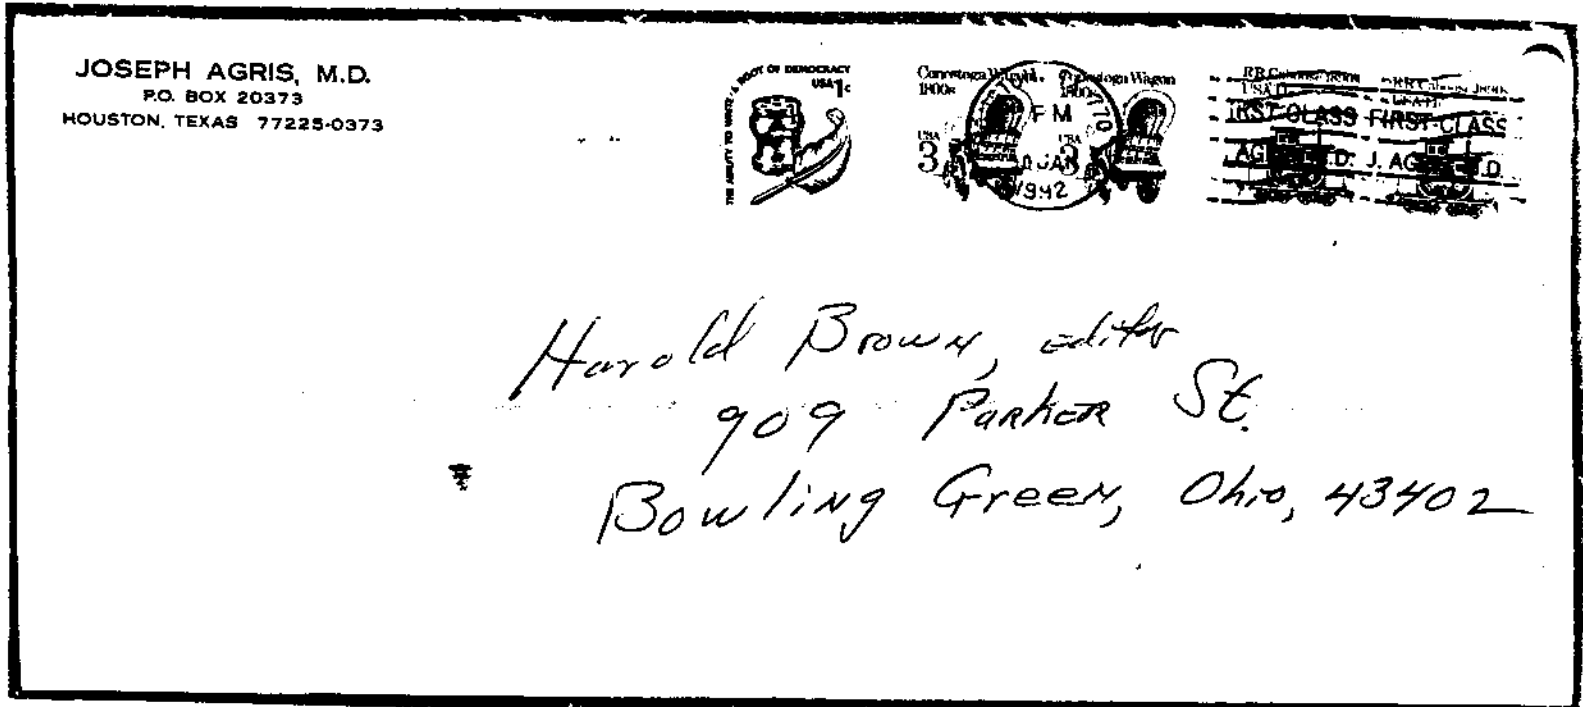 JOSEPH AGRIS, M.D.
P.O. BOX 20373
HOUSTON, TEXAS 77225-0373
THE ABILITY TO WRITE · A ROOT OF DEMOCRACY
USA 1c
Conestoga Wagon
1800s
USA
3
Conestoga Wagon
1800s
USA
3
PM
JAN
1992
RR Caboose 1890s
USA
RR Caboose 1890s
USA
FIRST-CLASS FIRST-CLASS
J. AG
Harold Brown, editor
909 Parker St.
Bowling Green, Ohio, 43402